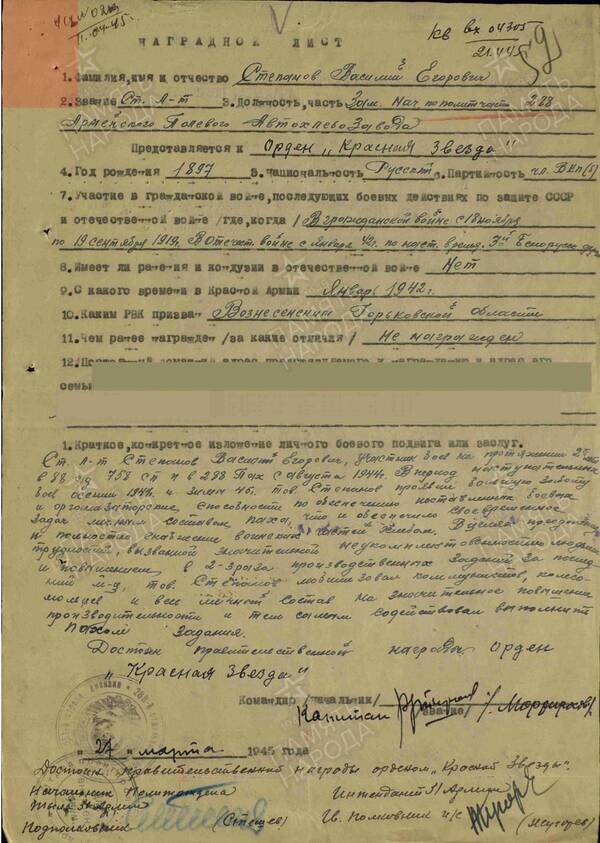 КВ вх 04305
11.04.45. 21.4.45
НАГРАДНОЙ ЛИСТ
1. Фамилия, имя и отчество Степанов Василий Егорович
2. Звание Ст. Л-т 3. Должность, часть Зам. Нач. по политчасти 288
Армейского Полевого Автохлебозавода
Представляется к Орден "Красная Звезда"
4. Год рождения 1897 5. Национальность Русский 6. Партийность чл. ВКП(б)
7. Участие в гражданской войне, последующих боевых действиях по защите СССР
и отечественной войне /где, когда/ В гражданской войне с 18 ноября
по 19 сентября 1919г. В Отечест. войне с января 42г. по наст. время. 3й Белорусс.
8. Имеет ли ранения и контузии в отечественной войне Нет
9. С какого времени в Красной Армии Январь 1942г.
10. Каким РВК призван Вознесенский Горьковской области
11. Чем ранее награжден /за какие отличия/ Не награжден
12. Постоянный домашний адрес представляемого к награждению и адрес его
семьи
1. Краткое, конкретное изложение личного боевого подвига или заслуг.
Ст. Л-т Степанов Василий Егорович, участник боев на протяжении 2 лет
в 88 сд 758 сп и в 288 Пах с августа 1944г. В период наступательных
боев осенью 1944г. и зимы 45г. тов. Степанов проявил большую заботу
и организаторские способности по обеспечению поставленных боевых
задач личным составом Паха, что и обеспечило своевременное
и полностью снабжение воинских частей хлебом. В целях преодоления
трудностей, вызванной значительной неукомплектованностью людьми
и повышением в 2-3 раза производственных заданий за послед
ний м-ц, тов. Степанов мобилизовал коммунистов, комсо-
мольцев и весь личный состав на значительное повышение
производительности и тем самым содействовал выполнить
Пахом задания.
Достоин правительственной награды орден
"Красная Звезда"
Командир /начальник/
Капитан /звание/ /Мордирахов/
"27" марта 1945 года
Достоин правительственной награды орденом "Красной Звезды".
Начальник Политотдела Интендант 31 Армии
тыла 31 Армии Гв. Полковник и/с
Подполковник
ПАМЯТЬ НАРОДА